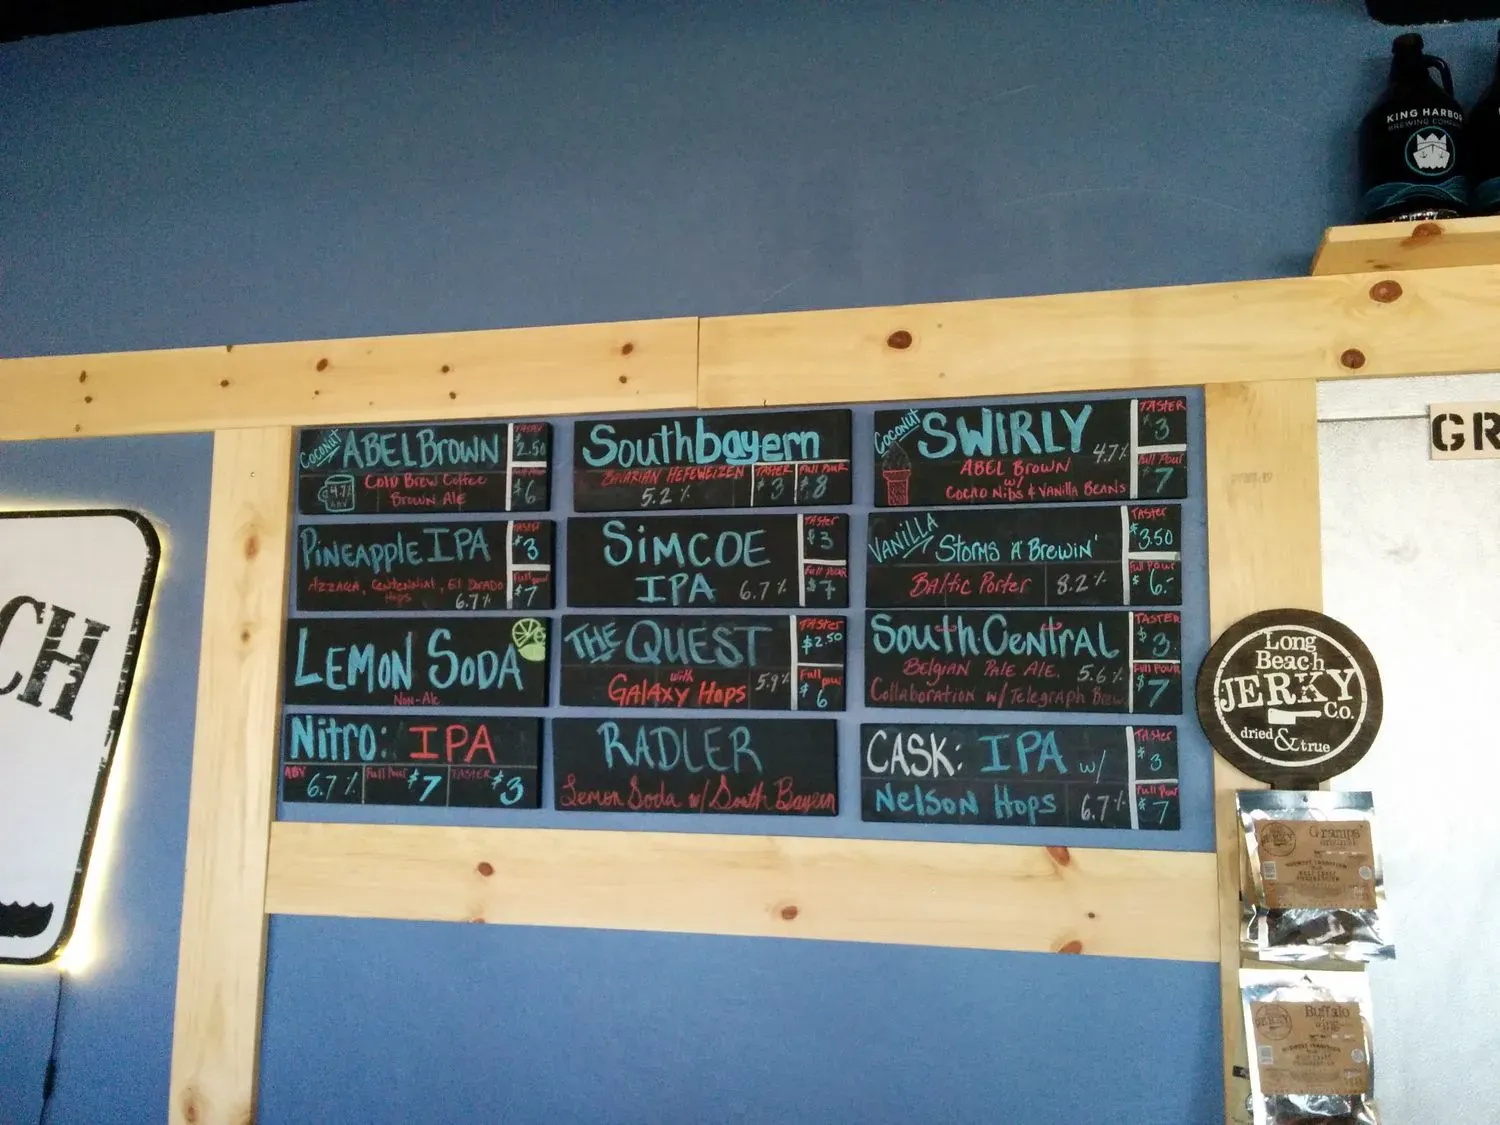 KING HARBO
BREWING COMPANY
COCONUT
ABEL BROWN
COLD BREW COFFEE
BROWN ALE
4.7%
ABV
TASTER
$2.50
Full Pour
$6
Southbayern
BAVARIAN HEFEWEIZEN
5.2%
TASTER
$3
Full Pour
$8
COCONUT
SWIRLY
4.7%
ABEL BROWN
w/
COCAO NiBS & VANILLA BEANS
TASTER
$3
Full Pour
7
PINEAPPLE IPA
AZZACA, CENTENNIAL, El DORADO
HOPS
6.7%
TASTER
$3
Full pour
$7
SIMCOE
IPA
6.7%
TASTER
$3
Full Pour
$7
VANILLA
STORMS A' BREWIN'
Baltic Porter
8.2%
TASTER
$3.50
Full Pour
$6.-
LEMON SODA
NON-Alc
THE QUEST
with
GALAXY HOPS
5.9%
TASTER
$2.50
Full pour
$6
SOUTH CENTRAL
Belgian Pale Ale.
5.6%
Collaboration w/ Telegraph Brew
TASTER
$3.
Full POUR
$7
Nitro: IPA
ABV
6.7%
Full Pour
$7
TASTER
$3
RADLER
Lemon Soda w/ South Bayern
CASK: IPA w/
NELSON HOPS
6.7%
TASTER
$3
Full Pour
$7
CH
GR
Long
Beach
JERKY
Co.
dried & true
Gramps'
Buffalo